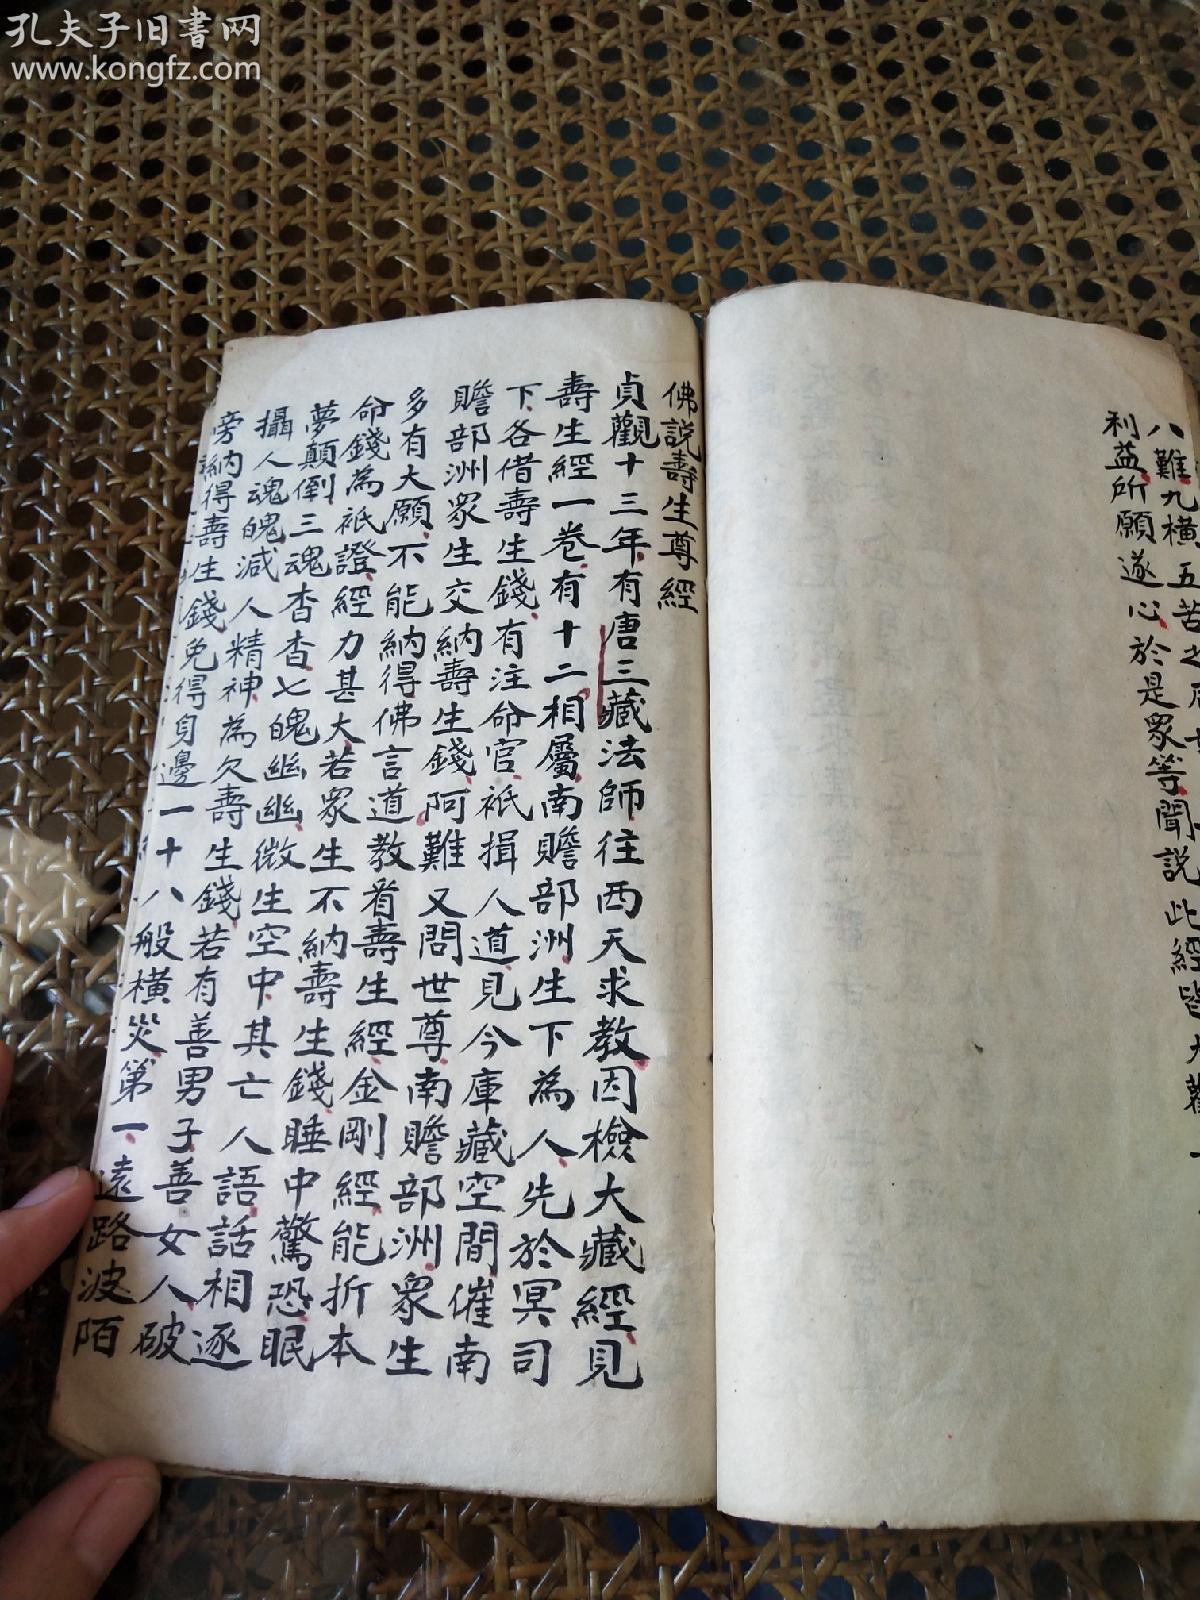 孔夫子旧書网
www.kongfz.com
八難九橫五苦之
利益所願遂心於是眾等聞說此經皆大歡
佛說壽生尊經
貞觀十三年有唐三藏法師往西天求教因檢大藏經見
壽生經一卷有十二相屬南贍部洲生下為人先於冥司
下各借壽生錢有注命官祇揖人道見今庫藏空閒催南
贍部洲眾生交納壽生錢阿難又問世尊南贍部洲眾生
多有大願不能納得佛言道教看壽生經金剛經能折本
命錢為祇證經力甚大若眾生不納壽生錢睡中驚恐眠
夢顛倒三魂杳杳七魄幽幽微生空中其亡人語話相逐
攝人魂魄減人精神為欠壽生錢若有善男子善女人破
旁納得壽生錢免得身邊一十八般橫災第一遠路波陌